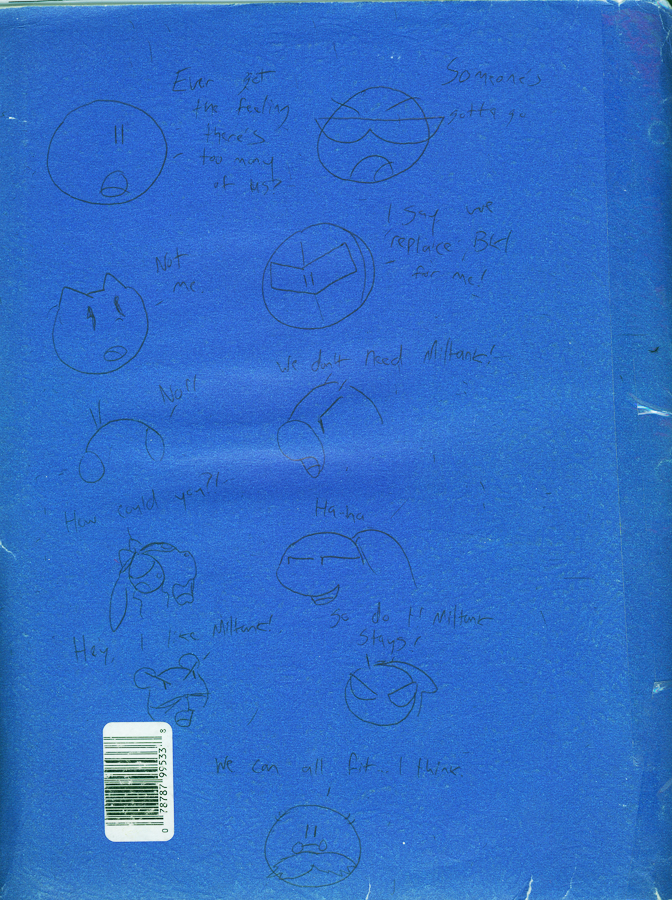 Ever get
the feeling
there's
too many
of us?
Someone's
gotta go
I say we
"replace"
for me!
Not
me
We don't need Miltank!
No!!
How could you?!...
Ha-ha
So do I! Miltank
stays!
Hey, I like Miltank!
We can all fit... I think
0 78787 99533 8